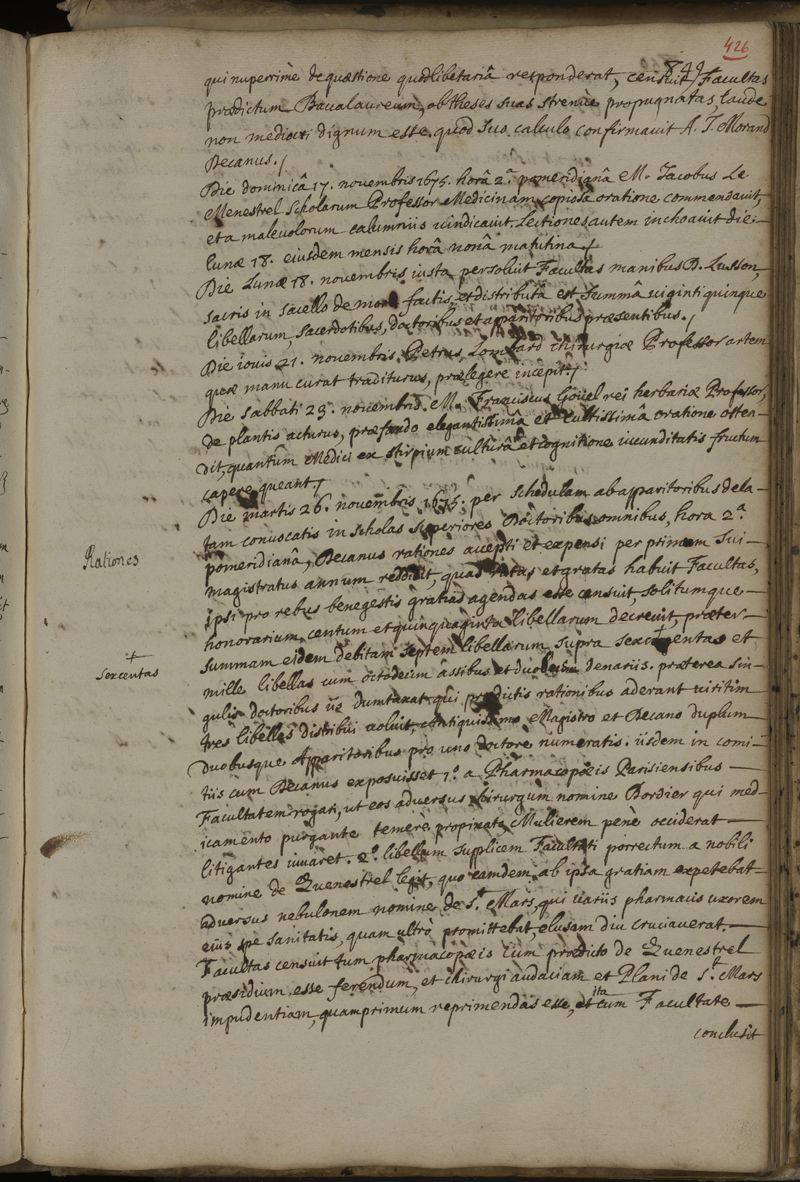 426
849
qui nuperrimè de quæstione quodlibetariâ responderat, censuit Facultas
prædictum Baccalaureum, ob theses suas strenuè propugnatas, laude
non mediocri dignum esse, quod suo calculo confirmavit A. J. Morand
Decanus./
Die dominicâ 17. novembris 1675. horâ 2.ª pomeridianâ M. Jacobus Le
Menestrel scholarum Professor Medicinam copiosâ oratione commendavit,
et a malevolorum calumniis vindicavit. Lectiones autem inchoavit die
lunæ 18. eiusdem mensis horâ nonâ matutina./
Die Lunæ 18. novembris iusta persoluit Facultas manibus D. Lusson,
sacris in sacello de more factis, et distributâ est summâ viginti quinque
libellarum, sacerdotibus, doctoribus et apparitoribus præsentibus./
Die iovis 21. novembris Petrus Lombard chirurgiæ Professor artem
quæ manu curat traditurus, prælegere incepit./
Die sabbati 23. novembris M. Franciscus Goüel rei herbariæ Professor,
de plantis acturus, præfando elegantissimâ et cultissimâ oratione osten-
dit, quantùm Medici ex stirpium culturâ et cognitione iucunditatis fructum
capere queant./
Die martis 26. novembris 1675. per schedulam ab apparitoribus dela-
tam convocatis in scholas superiores Doctoribus omnibus, hora 2.ª
Rationes
pomeridianâ, Decanus rationes accepti et expensi per primum sui
magistratus annum reddidit, quas ratas et gratas habuit Facultas,
ipsi pro rebus benegestis gratias agendas esse censuit, solitumque
honorarium centum et quinquaginta libellarum decrevit, præter
summam eidem debitam septem libellarum supra sexcentas et
+
sexcentas
mille libellas cum octodecim assibus et duobus denariis. præterea sin-
gulis doctoribus iis dumtaxat qui prædictis rationibus aderant viritim
tres libellas distribui voluit, antiquissimo Magistro et Decano duplum
Duobusque Apparitoribus pro uno doctore numeratis. iisdem in comi-
tiis cum Decanus exposuisset 1.º a Pharmacopœis Parisiensibus
Facultatem rogari, ut eos adversus chirurgum nomine Bordier qui med-
icamento purgante temerè propinato Mulierem penè occiderat
litigantes iuvaret. 2.º libellum supplicem Facultati porrectum a nobili
nomine de Quenestrel legit, quo eamdem ab ipsa gratiam expetebat
adversus nebulonem nomine de S.t Mars, qui variis pharmacis uxorem
eius spe sanitatis, quam ultrò promittebat, elusam diu cruciaverat.
Facultas censuit tum pharmacopœis tum prædicto de Quenestrel
præsidium esse ferendum, et chirurgi audaciam et Plani de S.t Mars
impudentiam, quamprimum reprimendas esse, et ita cum Facultate
conclusit